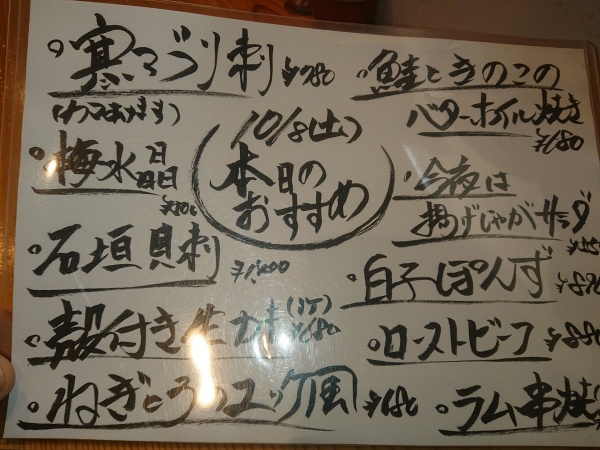 寒ブリ刺 ¥780
10/8(土)
本日の
おすすめ
梅水晶
石垣貝刺 ¥1,400
殻付き生カキ (1ケ)
¥680
ねぎとろのユッケ風 ¥680
鮭ときのこの
バターホイル焼き
¥680
今夜は
揚げじゃがサラダ
白子ぽんず
ローストビーフ
ラム串焼